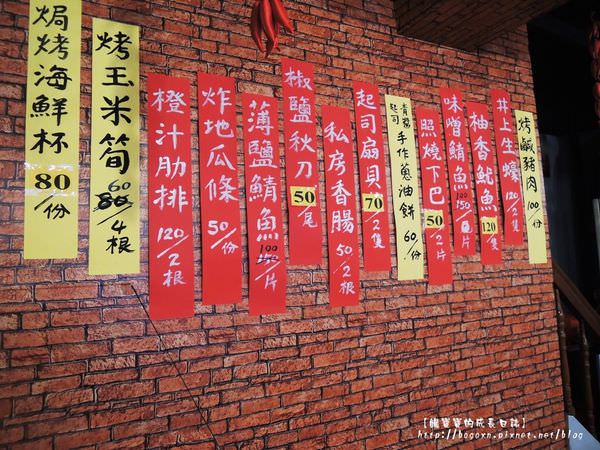 焗烤海鮮杯 80/份
烤玉米筍 60 80/4根
橙汁肋排 120/2根
炸地瓜條 50/份
薄鹽鯖魚 100 150/片
椒鹽秋刀 50/尾
私房香腸 50/2根
起司扇貝 70/2隻
起司手作蔥油餅 60/份
照燒下巴 50/2片
味噌鯖魚 100 150/片
柚香魷魚 120/隻
井上生蠔 120/2
烤鹹豬肉 100/份
【熊寶寶的成長日誌】
http://bogoxn.pixnet.net/blog